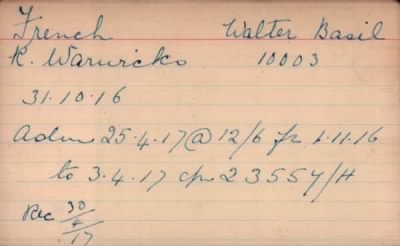 French Walter Basil
R. Warwicks 10003
31.10.16
Adm 25.4.17 @ 12/6 fr 1.11.16
to 3.4.17 23557/H
Rec 30/4/17